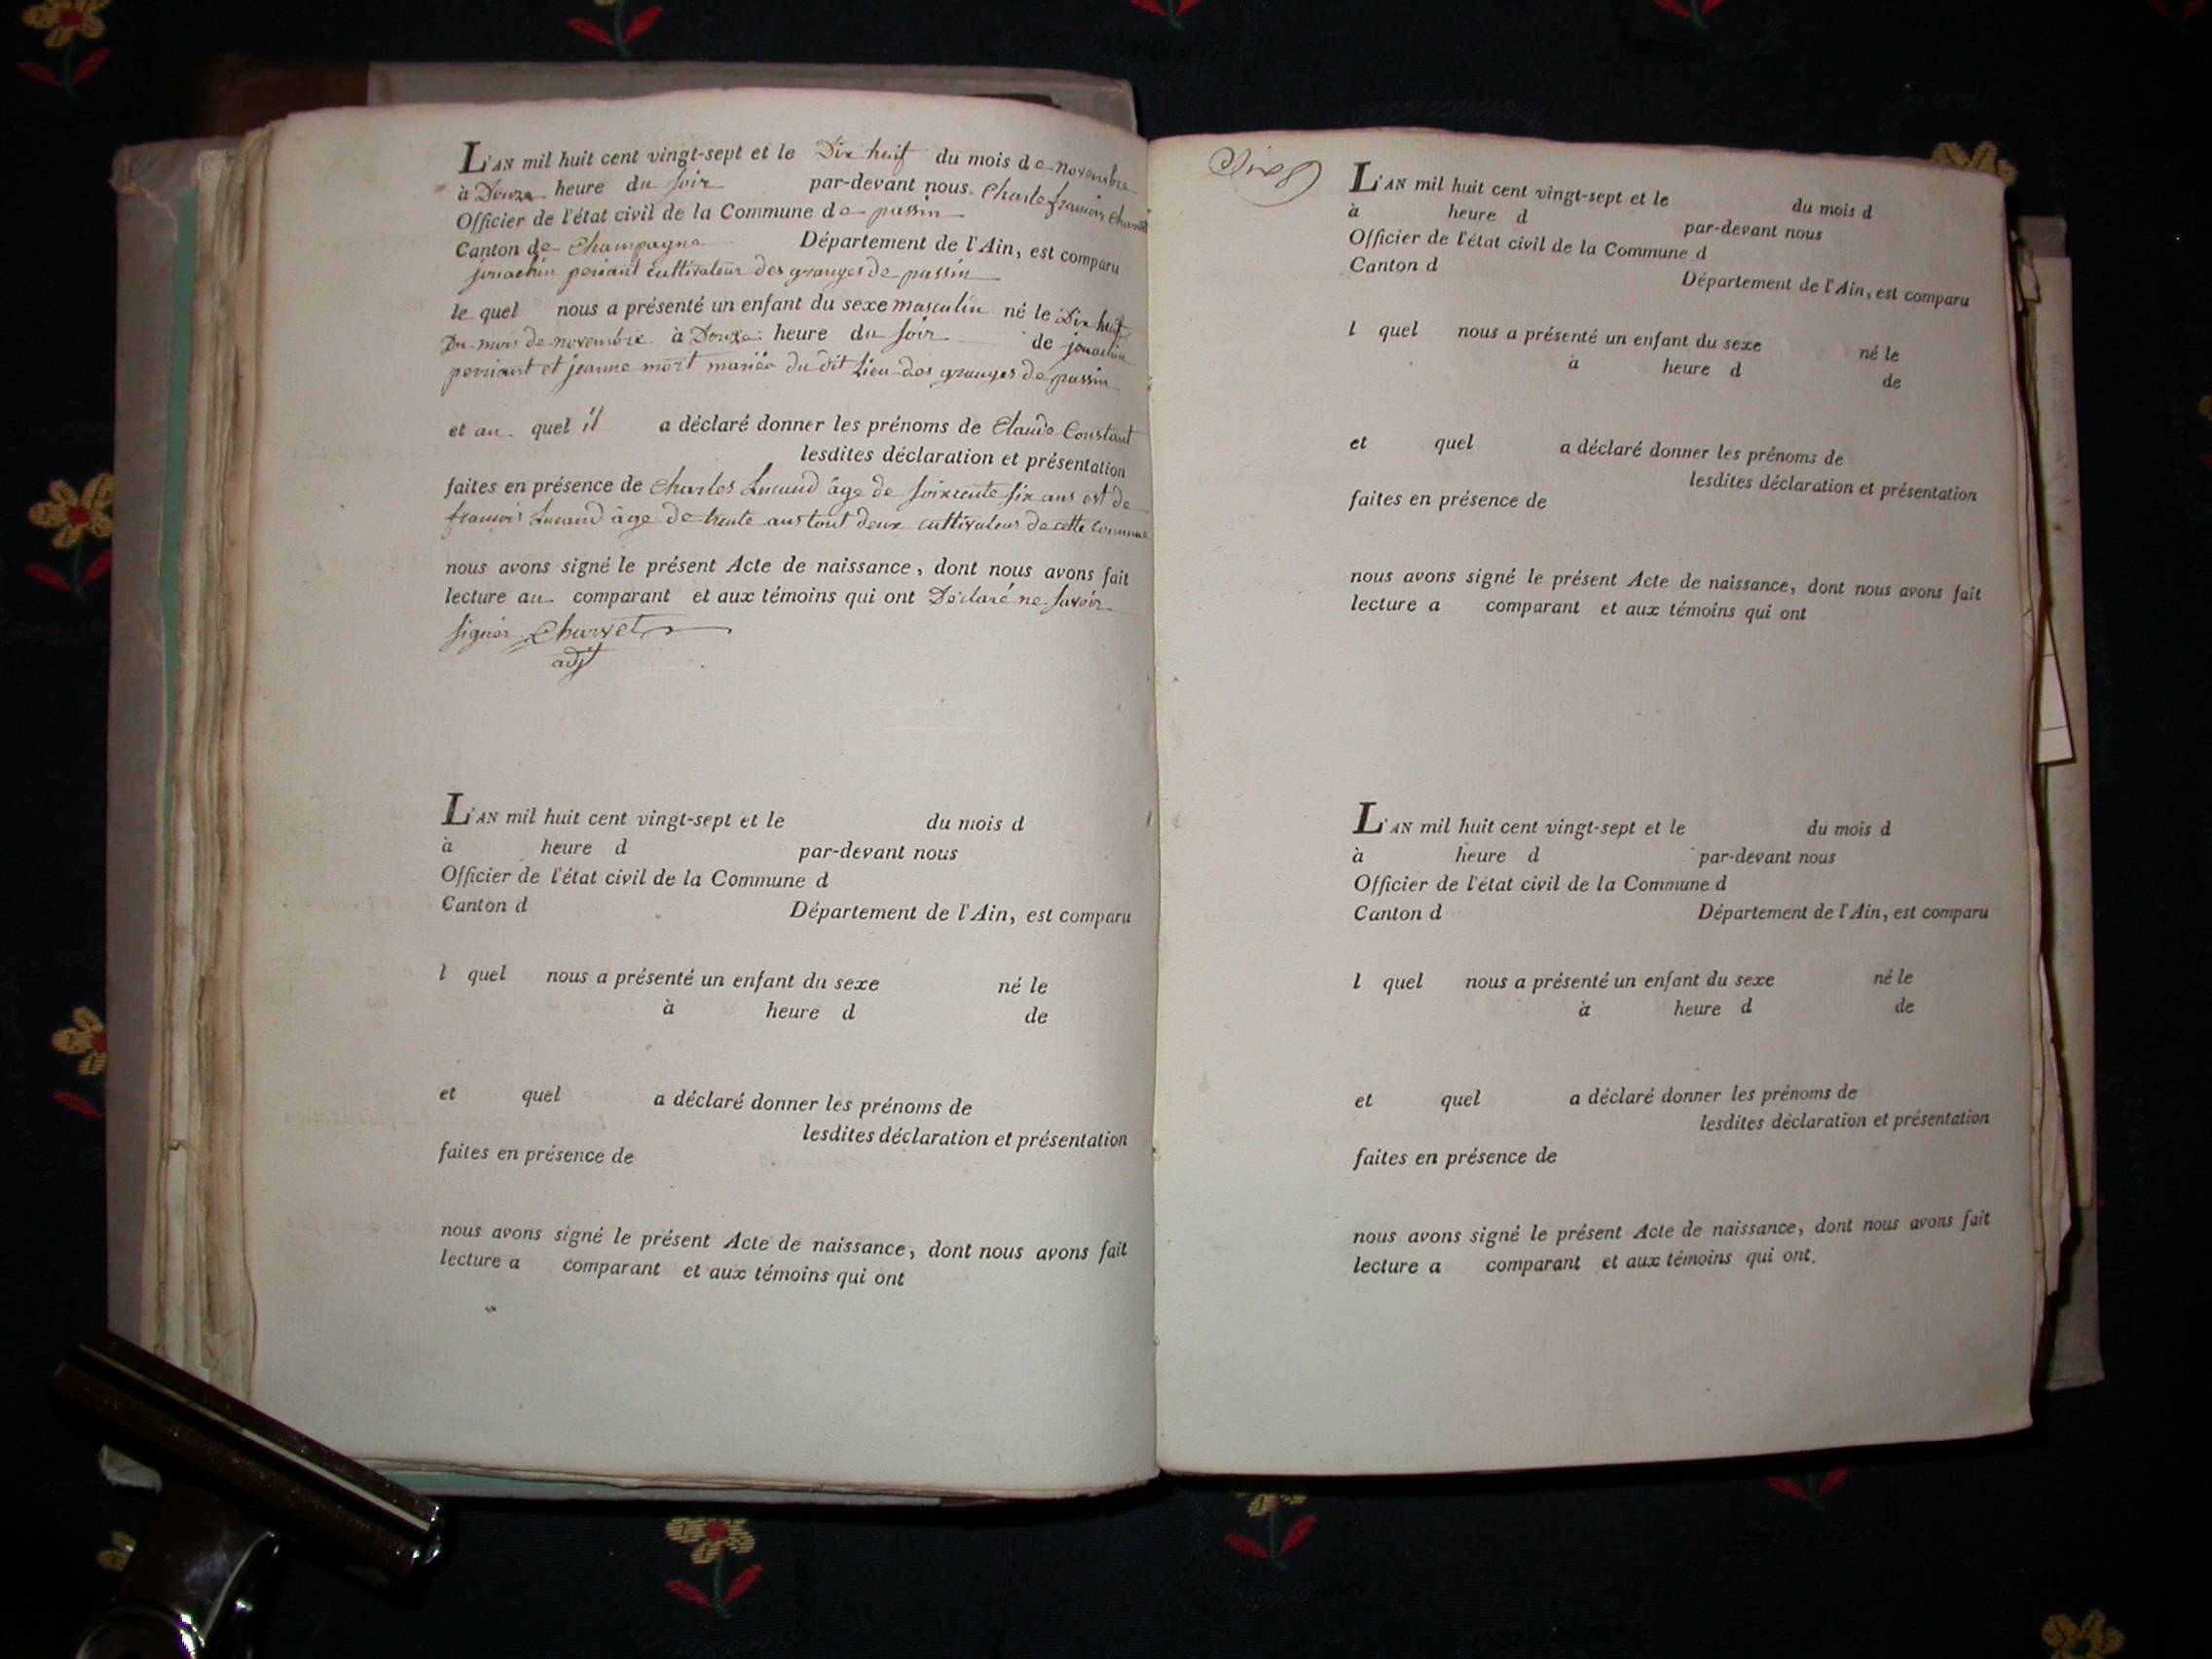 L'AN mil huit cent vingt-sept et le Dix huit du mois de novembre
à Douze heure du soir par-devant nous Charle françois
Officier de l'état civil de la Commune de passin
Canton de Champagne Département de l'Ain, est comparu
cultivateur des granges de passin
le quel nous a présenté un enfant du sexe masculin né le Dix huit
Du mois de novembre à Douze heure du soir de
et jeanne mort mariée du dit Lieu des granges de passin
et au quel il a déclaré donner les prénoms de Claude Constant
lesdites déclaration et présentation
faites en présence de Charles Lucand âge de soixente six ans est de
françois Lucand âge de trente ans tout deux cultivateur de cette commune
nous avons signé le présent Acte de naissance, dont nous avons fait
lecture au comparant et aux témoins qui ont Déclaré ne savoir
signer Charvet
adjt
L'AN mil huit cent vingt-sept et le du mois d
à heure d par-devant nous
Officier de l'état civil de la Commune d
Canton d Département de l'Ain, est comparu
l quel nous a présenté un enfant du sexe né le
à heure d de
et quel a déclaré donner les prénoms de
lesdites déclaration et présentation
faites en présence de
nous avons signé le présent Acte de naissance, dont nous avons fait
lecture a comparant et aux témoins qui ont
L'AN mil huit cent vingt-sept et le du mois d
à heure d par-devant nous
Officier de l'état civil de la Commune d
Canton d Département de l'Ain, est comparu
l quel nous a présenté un enfant du sexe né le
à heure d de
et quel a déclaré donner les prénoms de
lesdites déclaration et présentation
faites en présence de
nous avons signé le présent Acte de naissance, dont nous avons fait
lecture a comparant et aux témoins qui ont
L'AN mil huit cent vingt-sept et le du mois d
à heure d par-devant nous
Officier de l'état civil de la Commune d
Canton d Département de l'Ain, est comparu
l quel nous a présenté un enfant du sexe né le
à heure d de
et quel a déclaré donner les prénoms de
lesdites déclaration et présentation
faites en présence de
nous avons signé le présent Acte de naissance, dont nous avons fait
lecture a comparant et aux témoins qui ont.